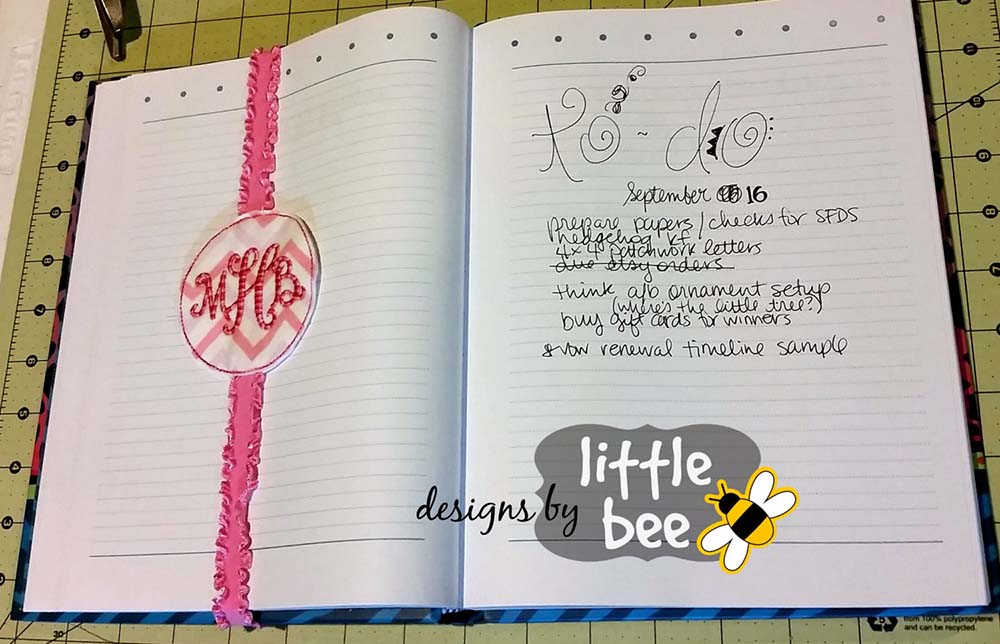 MHB
to ~ do
September 16
prepare papers/checks for SFDS
hedgehog kf
4x4 patchwork letters
due etsy orders
think a/b ornament setup
(where's the little tree?)
buy gift cards for winners
vow renewal timeline sample
designs by
little
bee
30
from 100% polypropylene
and can be recycled.